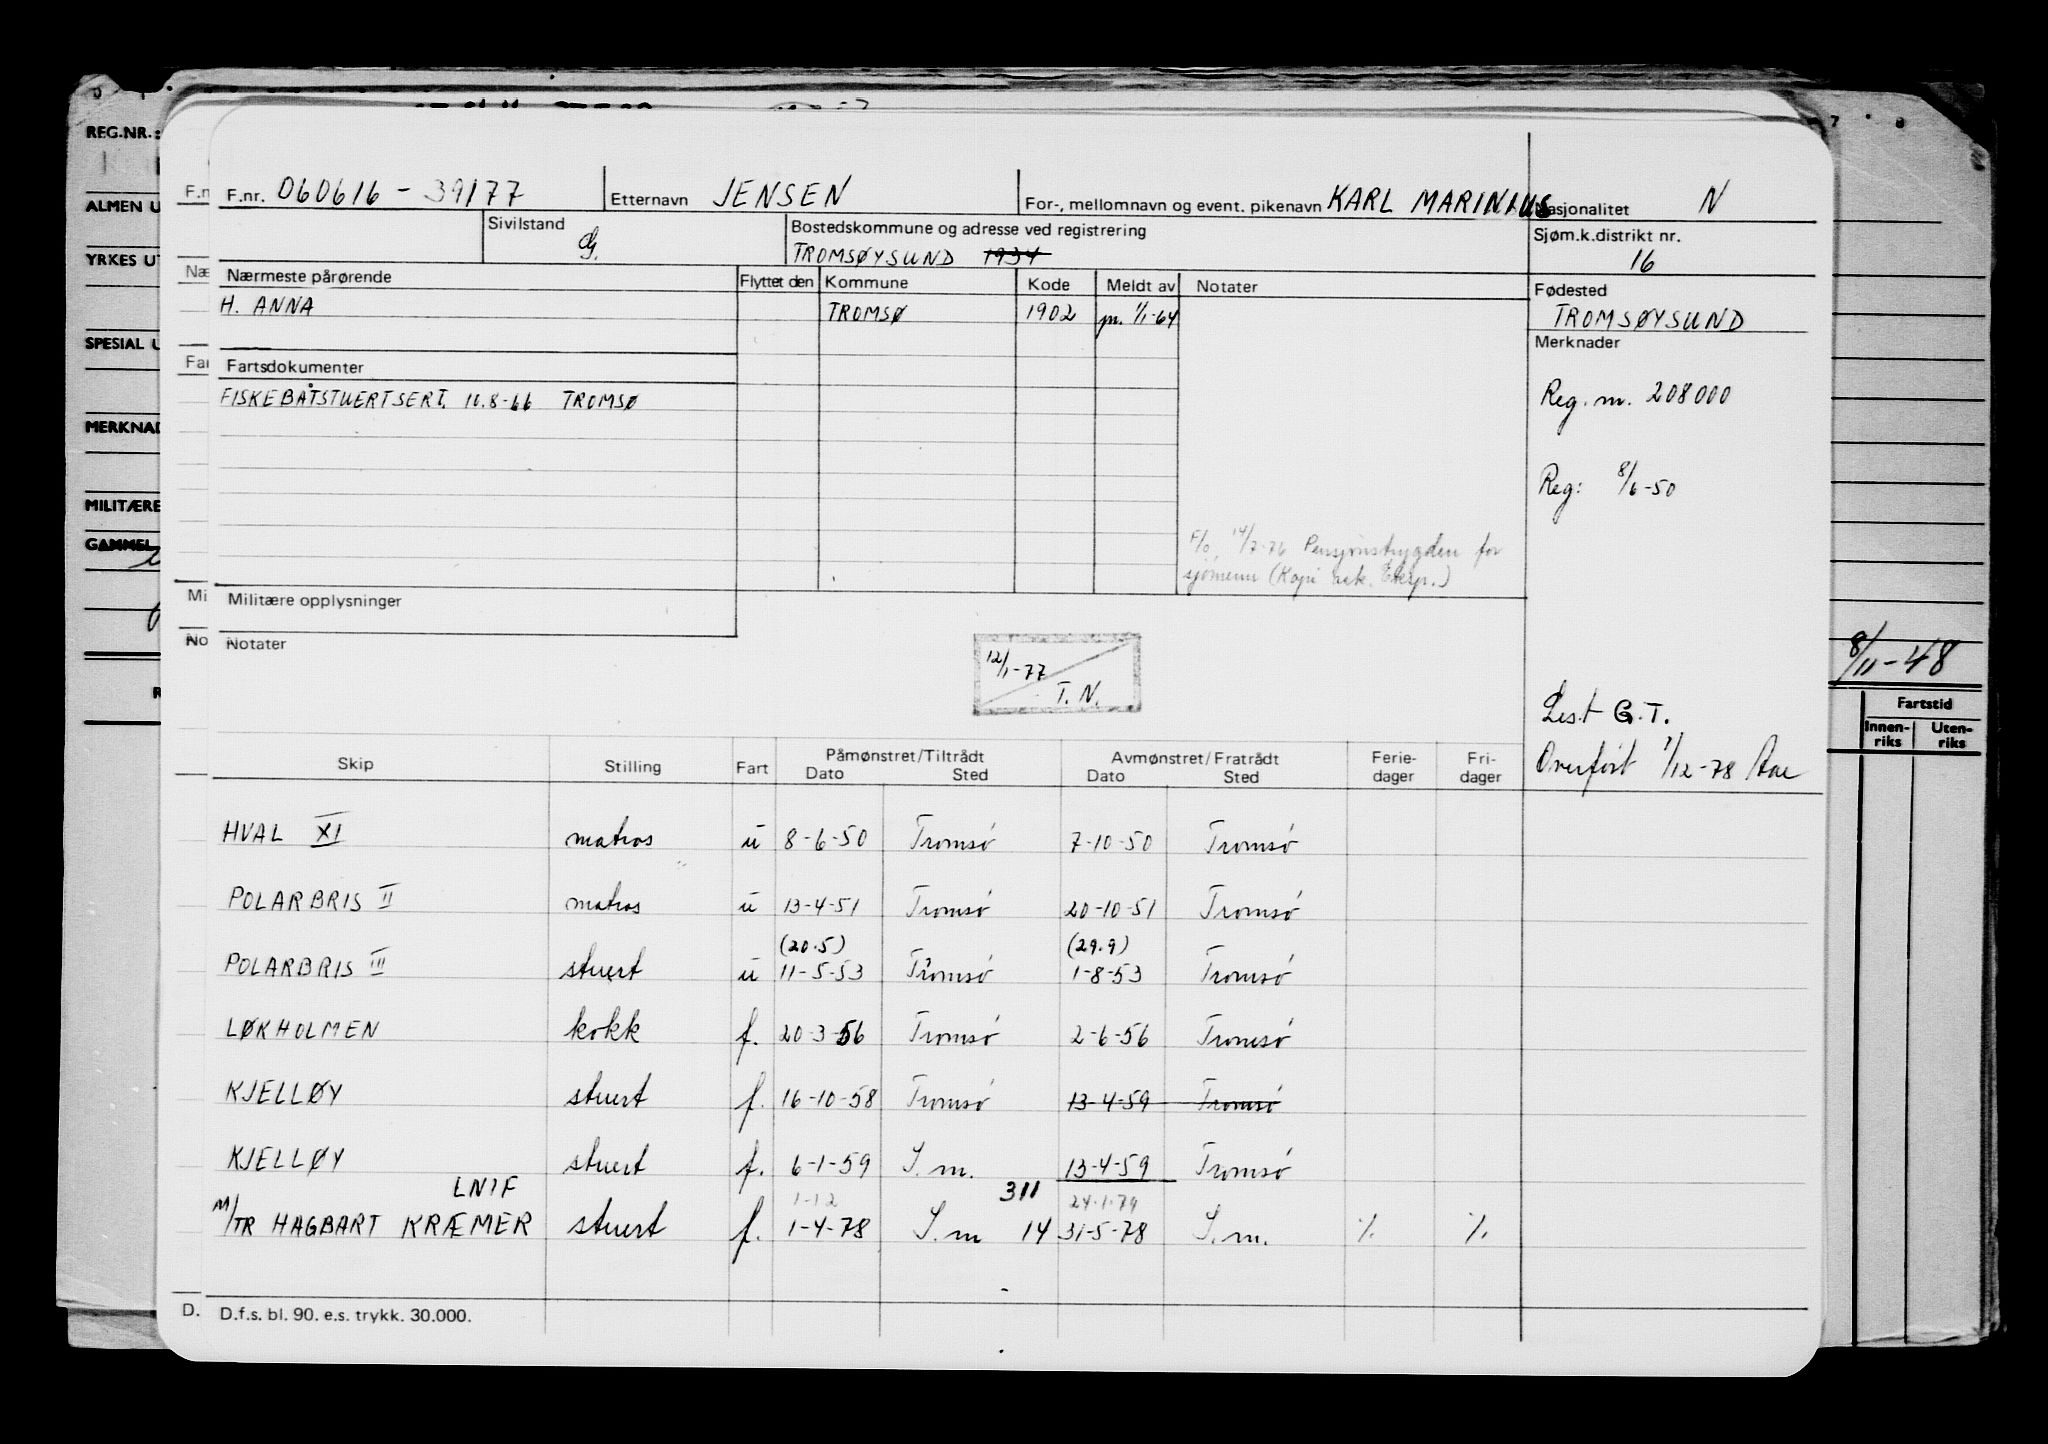 REG.NR.:
ALMEN U
YRKES UT
SPESIAL U
MERKNAD
MILITÆRE
GAMMEL
F.nr. 060616 - 39177 Etternavn JENSEN For-, mellomnavn og event. pikenavn KARL MARINIUS Nasjonalitet N
Sivilstand G. Bostedskommune og adresse ved registrering Sjøm.k.distrikt nr.
TROMSØYSUND 1934 16
Nærmeste pårørende Flyttet den Kommune Kode Meldt av Notater Fødested
H. ANNA TROMSØ 1902 pr. 1/1-64 TROMSØYSUND
Merknader
Fartsdokumenter
FISKEBÅTSTUERTSERT. 10.8-66 TROMSØ Reg. nr. 208000
Reg: 8/6-50
F/o, 14/7-76 Pensjonstrygden for
sjømenn (Kopi ark. Eksp.)
Militære opplysninger
Notater
12/1-77
T. N.
8/11-48
Fartstid
Innen-
riks
Uten-
riks
Lest G.T.
Overført 1/12-78
Skip Stilling Fart Påmønstret/Tiltrådt Dato Sted Avmønstret/Fratrådt Dato Sted Ferie-dager Fri-dager
HVAL XI matros u 8-6-50 Tromsø 7-10-50 Tromsø
POLARBRIS II matros u 13-4-51 Tromsø 20-10-51 Tromsø
(20.5) (29.9)
POLARBRIS III stuert u 11-5-53 Tromsø 1-8-53 Tromsø
LØKHOLMEN kokk f. 20-3-56 Tromsø 2-6-56 Tromsø
KJELLØY stuert f. 16-10-58 Tromsø 13-4-59 Tromsø
KJELLØY stuert f. 6-1-59 S.m. 13-4-59 Tromsø
LNIF 1-12 311 24.1.79
M/TR HAGBART KRÆMER stuert f. 1-4-78 S.m 14 31-5-78 S.m. % %
D. D.f.s. bl. 90. e.s. trykk. 30.000.